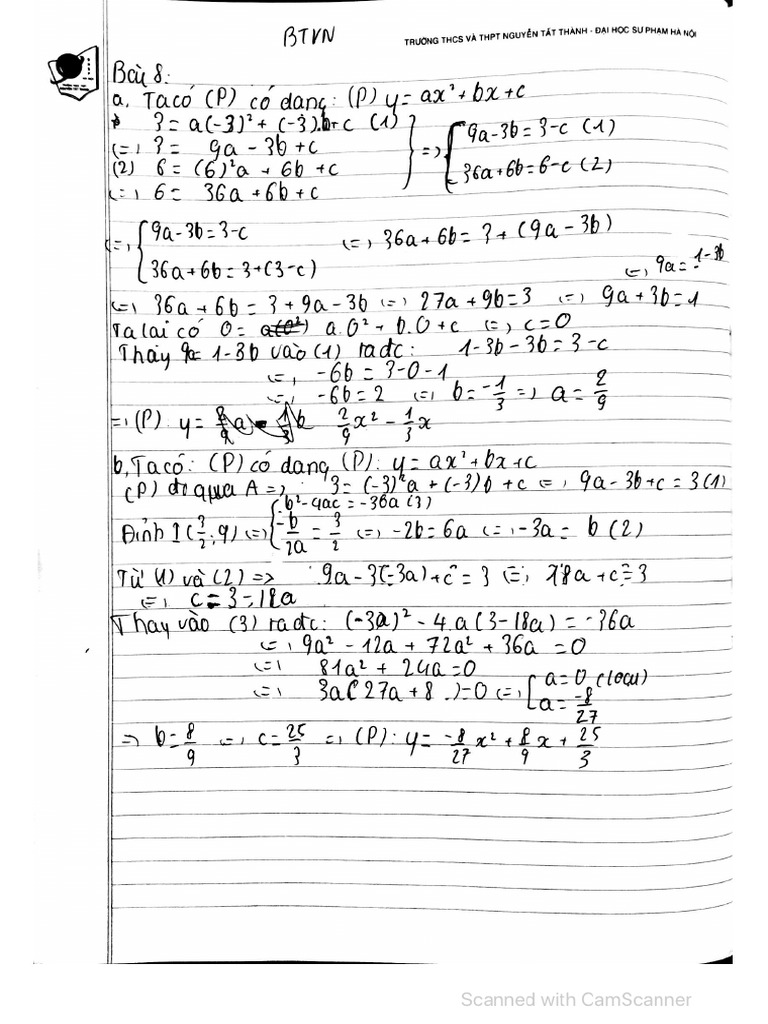 BTVN
TRƯỜNG THCS VÀ THPT NGUYỄN TẤT THÀNH - ĐẠI HỌC SƯ PHẠM HÀ NỘI
Bài 8:
a, Ta có (P) có dạng: (P) y = ax² + bx + c
3 = a(-3)² + (-3).b + c (1)
(=) 3 = 9a - 3b + c
(2) 6 = (6)²a + 6b + c
(=) 6 = 36a + 6b + c
=) { 9a - 3b = 3 - c (1)
36a + 6b = 6 - c (2)
(=) { 9a - 3b = 3 - c
36a + 6b = 3 + (3 - c)
(=) 36a + 6b = 3 + (9a - 3b)
(=) 36a + 6b = 3 + 9a - 3b (=) 27a + 9b = 3 (=) 9a + 3b = 1 (=) 9a = 1 - 3b
Ta lại có 0 = a.0² + b.0 + c (=) c = 0
Thay 9a = 1 - 3b vào (1) ta đc: 1 - 3b - 3b = 3 - c
(=) -6b = 3 - 0 - 1
(=) -6b = 2 (=) b = -1/3 =) a = 2/9
=) (P): y = 2/9x² - 1/3x
b, Ta có: (P) có dạng (P): y = ax² + bx + c
(P) đi qua A =) 3 = (-3)²a + (-3)b + c (=) 9a - 3b + c = 3 (1)
Đỉnh I(3/2; 9) (=) { b² - 4ac = -36a (3)
-b/2a = 3/2 (=) -2b = 6a (=) -3a = b (2)
Từ (1) và (2) => 9a - 3(-3a) + c = 3 (=) 18a + c = 3
(=) c = 3 - 18a
Thay vào (3) ta đc: (-3a)² - 4.a(3 - 18a) = -36a
(=) 9a² - 12a + 72a² + 36a = 0
(=) 81a² + 24a = 0
(=) 3a(27a + 8) = 0 (=) [ a = 0 (loại)
a = -8/27
=) b = 8/9 (=) c = 25/3 =) (P): y = -8/27 x² + 8/9 x + 25/3
Scanned with CamScanner